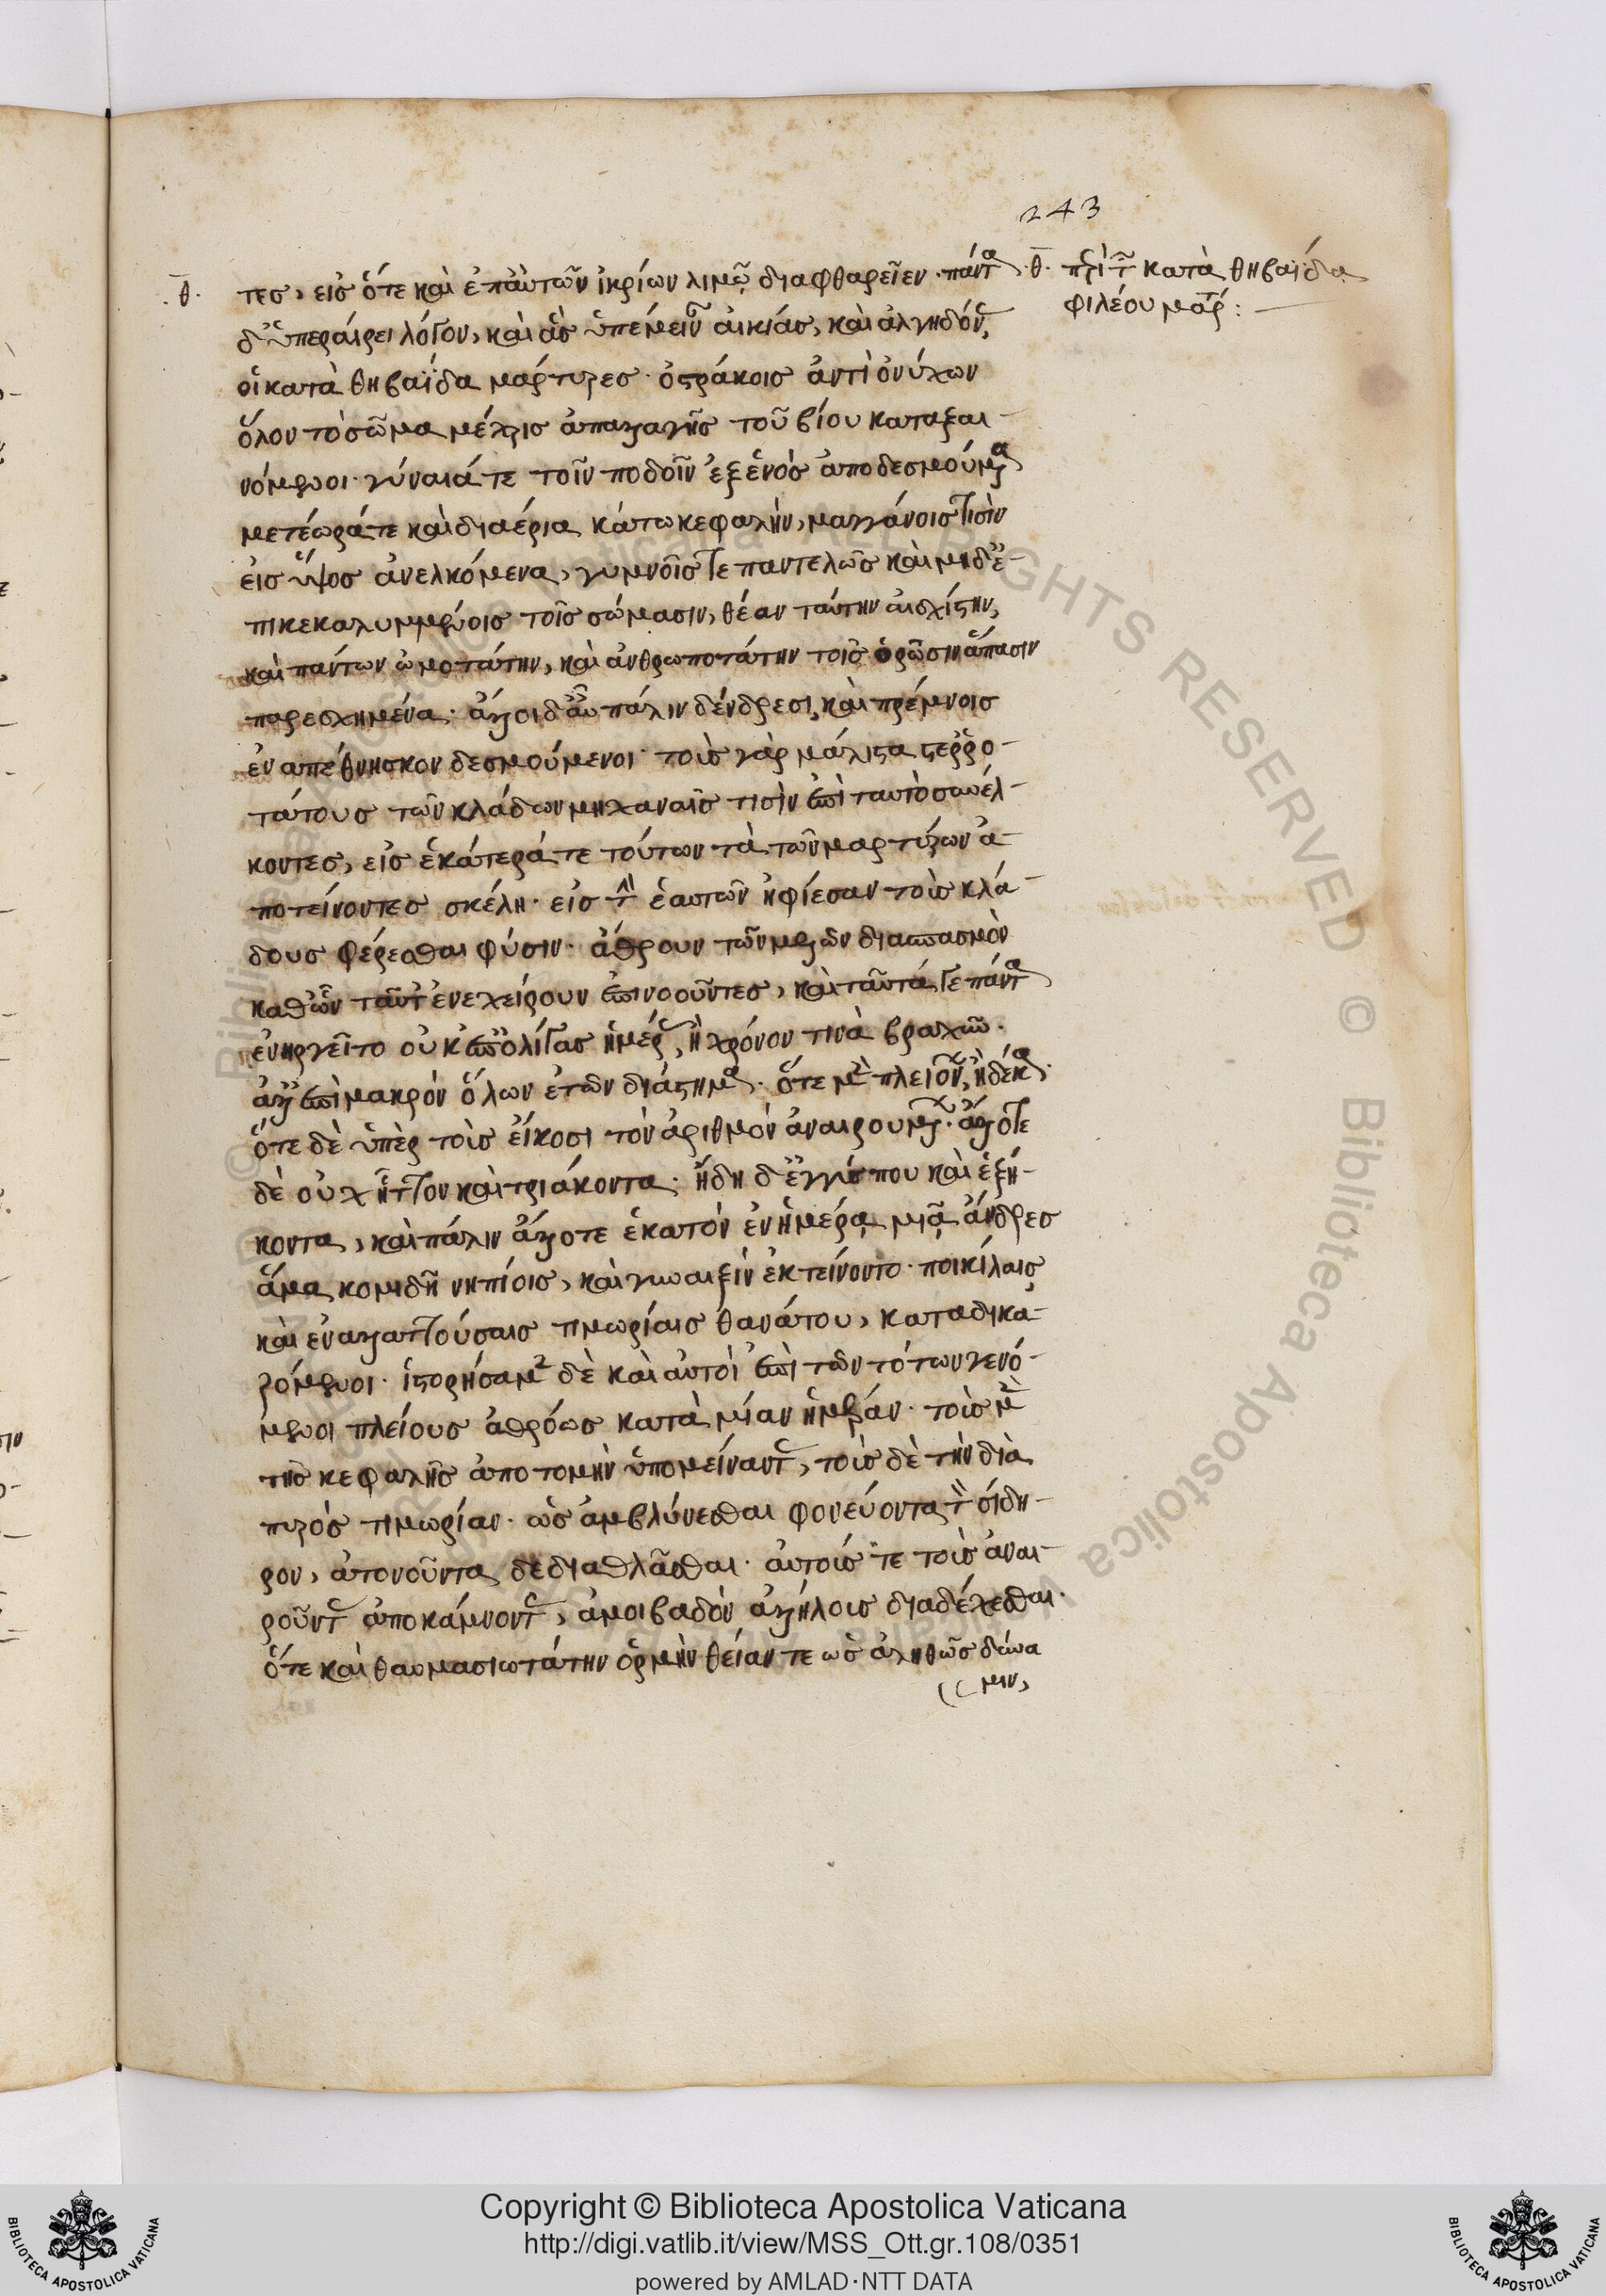 243
·θ· τες, εἰς ὅτε καὶ ἐπ' αὐτῶν ἰκρίων λιμῷ διαφθαρεῖεν· πάντα
δ' ὑπεραίρει λόγον, καὶ ἃς ὑπέμειναν αἰκίας, καὶ ἀλγηδόνας,
οἱ κατὰ θηβαΐδα μάρτυρες· ὀστράκοις ἀντὶ ὀνύχων
ὅλον τὸ σῶμα μέχρις ἀπαλλαγῆς τοῦ βίου καταξαι-
νόμενοι· γύναιά τε τοῖν ποδοῖν ἐξ ἑνὸς ἀποδεσμούμενα
μετέωρά τε καὶ διαέρια κάτω κεφαλὴν, μαγγάνοις τισὶν
εἰς ὕψος ἀνελκόμενα, γυμνοῖς τε παντελῶς καὶ μηδ' ἐ-
πικεκαλυμμένοις τοῖς σώμασιν, θέαν ταύτην αἰσχίστην,
καὶ πάντων ὠμοτάτην, καὶ ἀνθρωποτάτην τοῖς ὁρῶσιν ἅπασιν
παρεσχημένα· ἄλλοι δ' αὖ πάλιν δένδρεσι, καὶ πρέμνοις
ἐναπέθνησκον δεσμούμενοι· τοὺς γὰρ μάλιστα στερρο-
τάτους τῶν κλάδων μηχαναῖς τισὶν ἐπὶ ταυτὸ συνέλ-
κοντες, εἰς ἑκάτερά τε τούτων τὰ τῶν μαρτύρων ἀ-
ποτείνοντες σκέλη· εἰς τὴν ἑαυτῶν ἠφίεσαν τοὺς κλά-
δους φέρεσθαι φύσιν· ἄθρουν τῶν μελῶν διασπασμὸν
καθ' ὧν ταῦτ' ἐνεχείρουν ἐπινοοῦντες, καὶ ταῦτά γε πάντα
ἐνηργεῖτο οὐκ ἐπ' ὀλίγας ἡμέρας, ἢ χρόνον τινὰ βραχὺν·
ἀλλ' ἐπὶ μακρὸν ὅλων ἐτῶν διάστημα· ὅτε μὲν πλειόνων, ἢ δέκα·
ὅτε δὲ ὑπὲρ τοὺς εἴκοσι τὸν ἀριθμὸν ἀναιρουμένων· ἄλλοτε
δὲ οὐχ ἧττον καὶ τριάκοντα· ἤδη δ' ἐγγύς που καὶ ἑξή-
κοντα, καὶ πάλιν ἄλλοτε ἑκατὸν ἐν ἡμέρᾳ μιᾷ ἄνδρες
ἅμα κομιδῆ νηπίοις, καὶ γυναιξὶν ἐκτείνοντο· ποικίλαις
καὶ ἐναλλαττούσαις τιμωρίαις θανάτου, καταδικα-
ζόμενοι· ἱστορήσαμεν δὲ καὶ αὐτοὶ ἐπὶ τῶν τότων γενό-
μενοι πλείους ἀθρόως κατὰ μίαν ἡμέραν· τοὺς μὲν
τῆς κεφαλῆς ἀποτομὴν ὑπομείναντας, τοὺς δὲ τὴν διὰ
πυρὸς τιμωρίαν· ὡς ἀμβλύνεσθαι φονεύοντα τὸν σίδη-
ρον, ἀτονοῦντα δὲ διαθλᾶσθαι· αὐτούς τε τοὺς ἀναι-
ροῦντας ἀποκάμνοντας, ἀμοιβαδὸν ἀλλήλοις διαδέχεσθαι·
ὅτε καὶ θαυμασιωτάτην ὁρμὴν θείαν τε ὡς ἀληθῶς δύνα
μιν,
·θ· περὶ τῶν κατὰ θηβαΐδα
φιλέου μαρτύρων:
© Biblioteca Apostolica Vaticana ALL RIGHTS RESERVED © Biblioteca Apostolica Vaticana
Copyright © Biblioteca Apostolica Vaticana
http://digi.vatlib.it/view/MSS_Ott.gr.108/0351
powered by AMLAD·NTT DATA
BIBLIOTECA APOSTOLICA VATICANA
BIBLIOTECA APOSTOLICA VATICANA